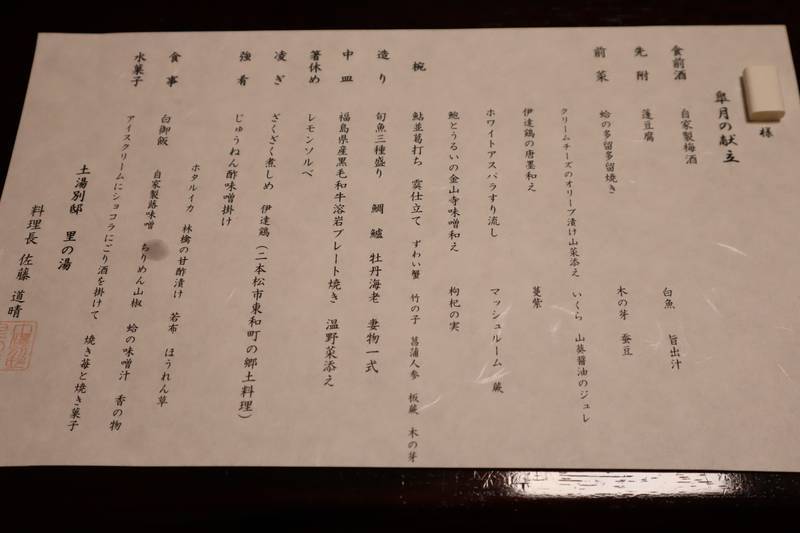 様
皐月の献立
食前酒 自家製梅酒
先附 蓬豆腐 白魚 旨出汁
前菜 蛤の多留多留焼き 木の芽 蚕豆
クリームチーズのオリーブ漬け山菜添え いくら 山葵醤油のジュレ
伊達鶏の唐墨和え 蔓紫
ホワイトアスパラすり流し マッシュルーム 蕨
鮑とうるいの金山寺味噌和え 枸杞の実
椀 鮎並葛打ち 霙仕立て ずわい蟹 竹の子 菖蒲人参 板蕨 木の芽
造り 旬魚三種盛り 鯛 鱸 牡丹海老 妻物一式
中皿 福島県産黒毛和牛溶岩プレート焼き 温野菜添え
箸休め レモンソルベ
凌ぎ ざくざく煮しめ 伊達鶏(二本松市東和町の郷土料理)
強肴 じゅうねん酢味噌掛け
ホタルイカ 林檎の甘酢漬け 若布 ほうれん草
食事 白御飯 自家製蕗味噌 ちりめん山椒 蛤の味噌汁 香の物
水菓子 アイスクリームにショコラにごり酒を掛けて 焼き苺と焼き菓子
土湯別邸 里の湯
料理長 佐藤 道晴